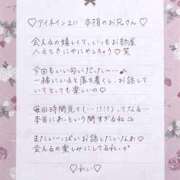 ♡アイネイン211 本指のお兄さん♡
会えるの嬉しくて、いつもお部屋
入るときにやにやしちゃう♡笑
今回もいい匂いだった〜♪
一緒にいると落ち着くし、お話して
いてとても楽しいの♡
毎回時間見て もう!?ってなる
本当にあっという間すぎるね
またいーっぱいお話したいなぁ♡
会えるの楽しみにしてるねっ♡